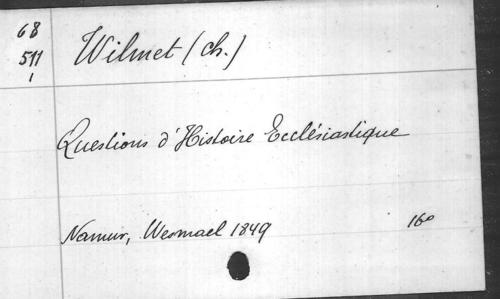 68
511
1
Wilmet (Ch.)
Questions d'Histoire Ecclésiastique
Namur, Wesmael 1849 16°